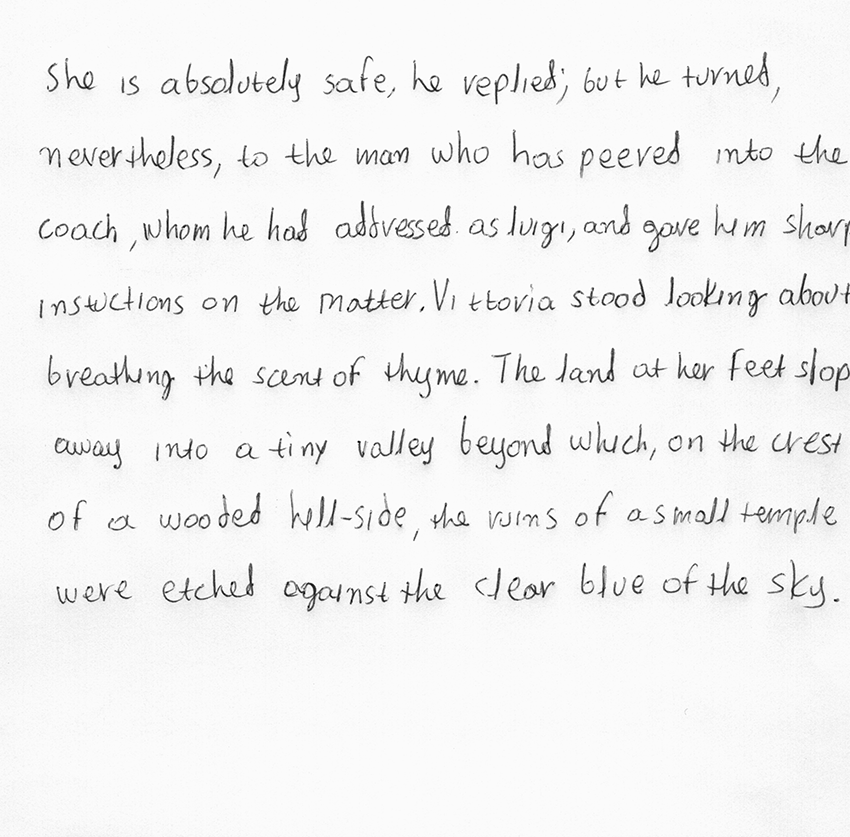 She is absolutely safe, he replied; but he turned,
nevertheless, to the man who has peered into the
coach, whom he had addressed. as luigi, and gave him sharp
instuctions on the matter. Vittoria stood looking about
breathing the scent of thyme. The land at her feet slop
away into a tiny valley beyond which, on the crest
of a wooded hill-side, the ruins of a small temple
were etched against the clear blue of the sky.